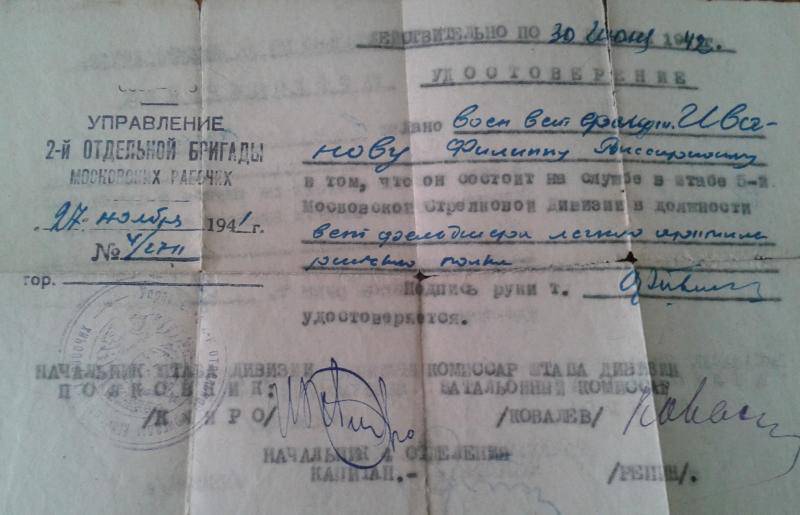 ДЕЙСТВИТЕЛЬНО ПО 30 Июня 1942г.
УДОСТОВЕРЕНИЕ
УПРАВЛЕНИЕ
2-й ОТДЕЛЬНОЙ БРИГАДЫ
МОСКОВСКИХ РАБОЧИХ
27 ноября 1941г.
№
гор.
дано воен вет фельдш. Ива-
нову Филиппу Виссарионовичу
в том, что он состоит на службе в штабе 5-й
Московской Стрелковой Дивизии в должности
вет фельдшера легкого артилле
рийского полка
Подпись руки т.
удостоверяется.
НАЧАЛЬНИК ШТАБА ДИВИЗИИ
ПОЛКОВНИК:
ВОЕНКОМИССАР ШТАБА ДИВИЗИИ
БАТАЛЬОННЫЙ КОМИССАР
/КОВАЛЕВ/
НАЧАЛЬНИК 4 ОТДЕЛЕНИЯ
КАПИТАН.- /РЕПИН/.